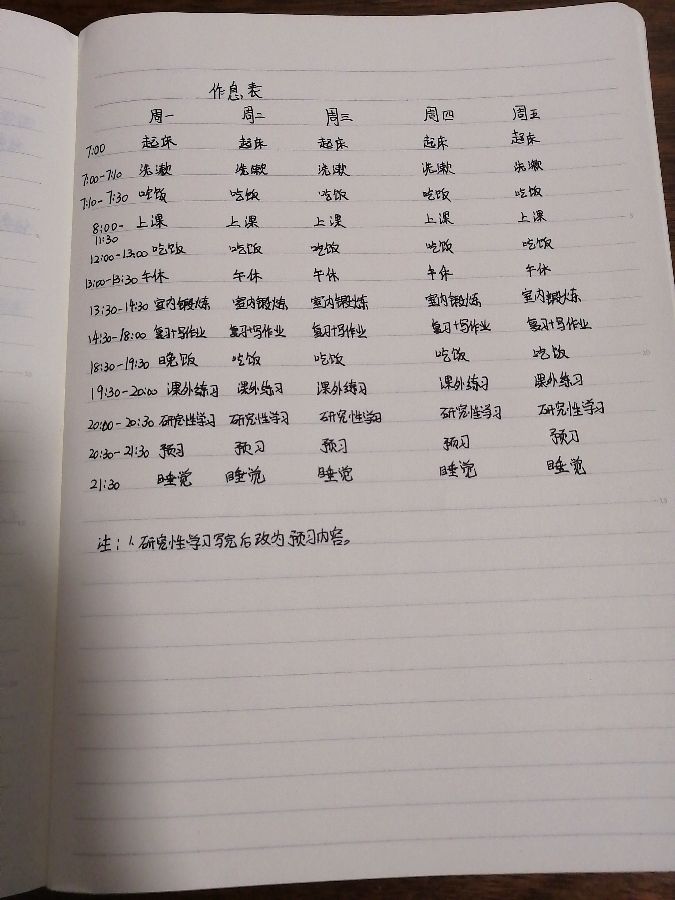 作息表
周一 周二 周三 周四 周五
7:00 起床 起床 起床 起床 起床
7:00-7:10 洗漱 洗漱 洗漱 洗漱 洗漱
7:10-7:30 吃饭 吃饭 吃饭 吃饭 吃饭
8:00-11:30 上课 上课 上课 上课 上课
12:00-13:00 吃饭 吃饭 吃饭 吃饭 吃饭
13:00-13:30 午休 午休 午休 午休 午休
13:30-14:30 室内锻炼 室内锻炼 室内锻炼 室内锻炼 室内锻炼
14:30-18:00 复习+写作业 复习+写作业 复习+写作业 复习+写作业 复习+写作业
18:30-19:30 晚饭 吃饭 吃饭 吃饭 吃饭
19:30-20:00 课外练习 课外练习 课外练习 课外练习 课外练习
20:00-20:30 研究性学习 研究性学习 研究性学习 研究性学习 研究性学习
20:30-21:30 预习 预习 预习 预习 预习
21:30 睡觉 睡觉 睡觉 睡觉 睡觉
注：1.研究性学习写完后改为预习内容。